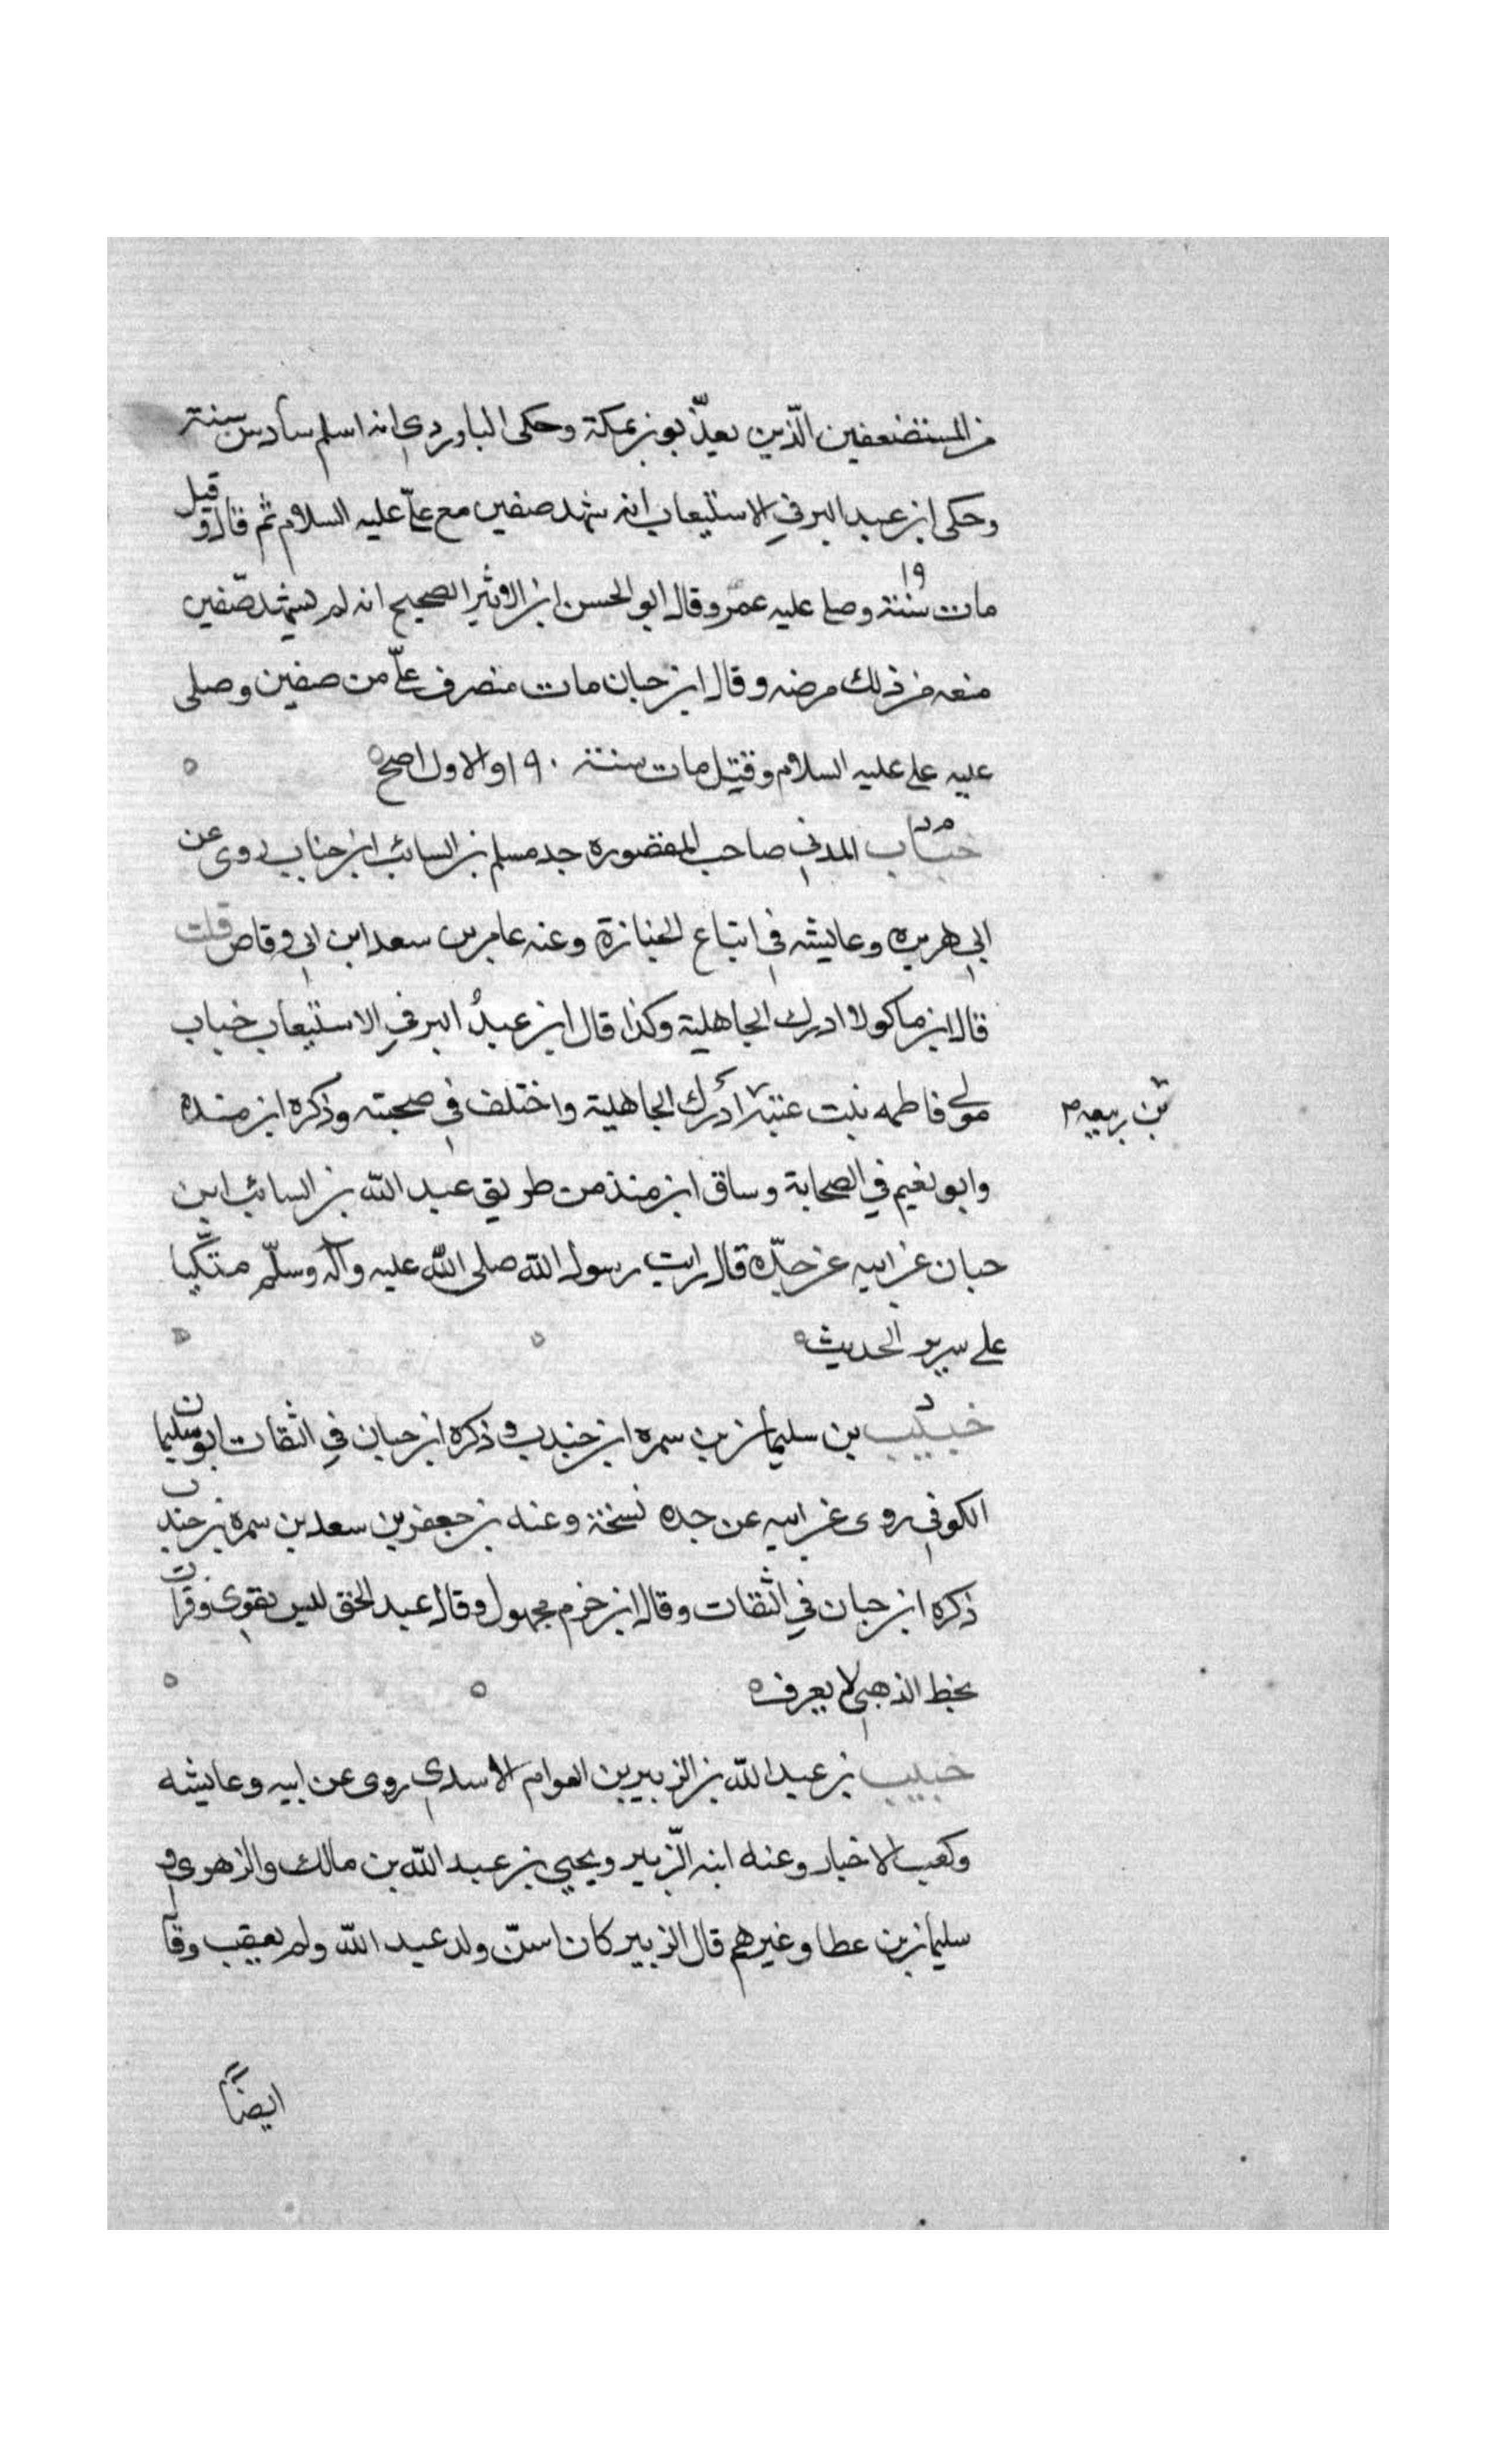 من المستضعفين الّذين يعذّبون بمكة وحكى الباوردي انه اسلم سادس سنة
وحكى ابن عبد البر في الاستيعاب انه شهد صفين مع علىّ عليه السلام ثم قال وقيل
مات سنة ١٩ وصلى عليه عمر وقال ابو الحسن ابن الاثير الصحيح انه لم يشهد صفين
منعه من ذلك مرضه وقال ابن حبان مات منصرف علىّ من صفين وصلى
عليه على عليه السلام وقيل مات سنة ١٩٠ والاول اصح
خباب المدني صاحب المقصوره جد مسلم بن السائب ابن خباب روى عن
ابي هريره وعايشه في اتباع الجنازة وعنه عامر بن سعد ابن ابي وقاص قلت
قال ابن ماكولا ادرك الجاهلية وكذا قال ابن عبد البر في الاستيعاب خباب
مولى فاطمه بنت عتبة ادرك الجاهلية واختلف في صحبته وذكره ابن منده
بن ربيعه
وابو نعيم في الصحابة وساق ابن مندمن طريق عبد الله بن السائب ابن
حبان عن ابيه عن جدّه قال رايت رسول الله صلى الله عليه وآله وسلّم متّكيا
على سرير الحديث
خبيب بن سليمان بن سمره ابن جندب وذكره ابن حبان في الثقات ابو سليمان
الكوفي روى عن ابيه عن جده نسخة وعنه بن جعفر بن سعد بن سمره بن جندب
ذكره ابن حبان في الثقات وقال ابن حزم مجهول وقال عبد الحق ليس بقوي وقرات
بخط الذهبي لا يعرف
خبيب بن عبد الله بن الزبير بن العوام الاسدي روى عن ابيه وعايشه
وكعب الاخبار وعنه ابنه الزّبير ويحيى بن عبد الله بن مالك والزهري و
سليمان بن عطا وغيرهم قال الزبير كان اسنّ ولد عبد الله ولم يعقب وقا
ايضاً